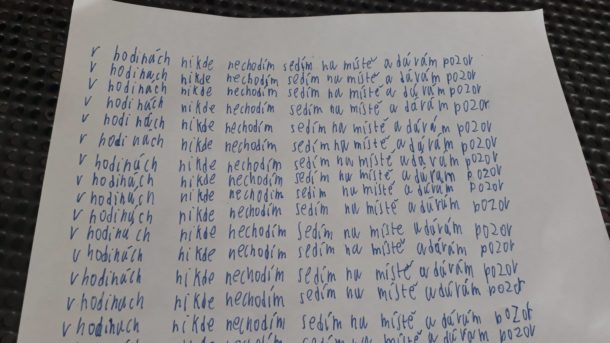 v hodinách nikde nechodím sedím na místě a dávám pozor
v hodinach nikde nechodím sedím na místě a dávám pozor
v hodinách nikde nechodím sedím na místě a dávám pozor
v hodinách nikde nechodím sedím na místě a dávám pozor
v hodinách nikde nechodím sedím na místě a dávám pozor
v hodinách nikde nechodím sedím na místě a dávám pozor
v hodinách nikde nechodím sedím na místě a dávám pozor
v hodinách nikde nechodím sedím na místě a dávám pozor
v hodinách nikde nechodím sedím na místě a dávám pozor
v hodinách nikde nechodím sedím na místě a dávám pozor
v hodinách nikde nechodím sedím na místě a dávám pozor
v hodinách nikde nechodím sedím na místě a dávám pozor
v hodinách nikde nechodím sedím na místě a dávám pozor
v hodinach nikde nechodím sedím na místě a dávám pozor
v hodinach nikde nechodím sedím na místě a dávám pozor
nikde nechodím sedím na místě a dávám pozor